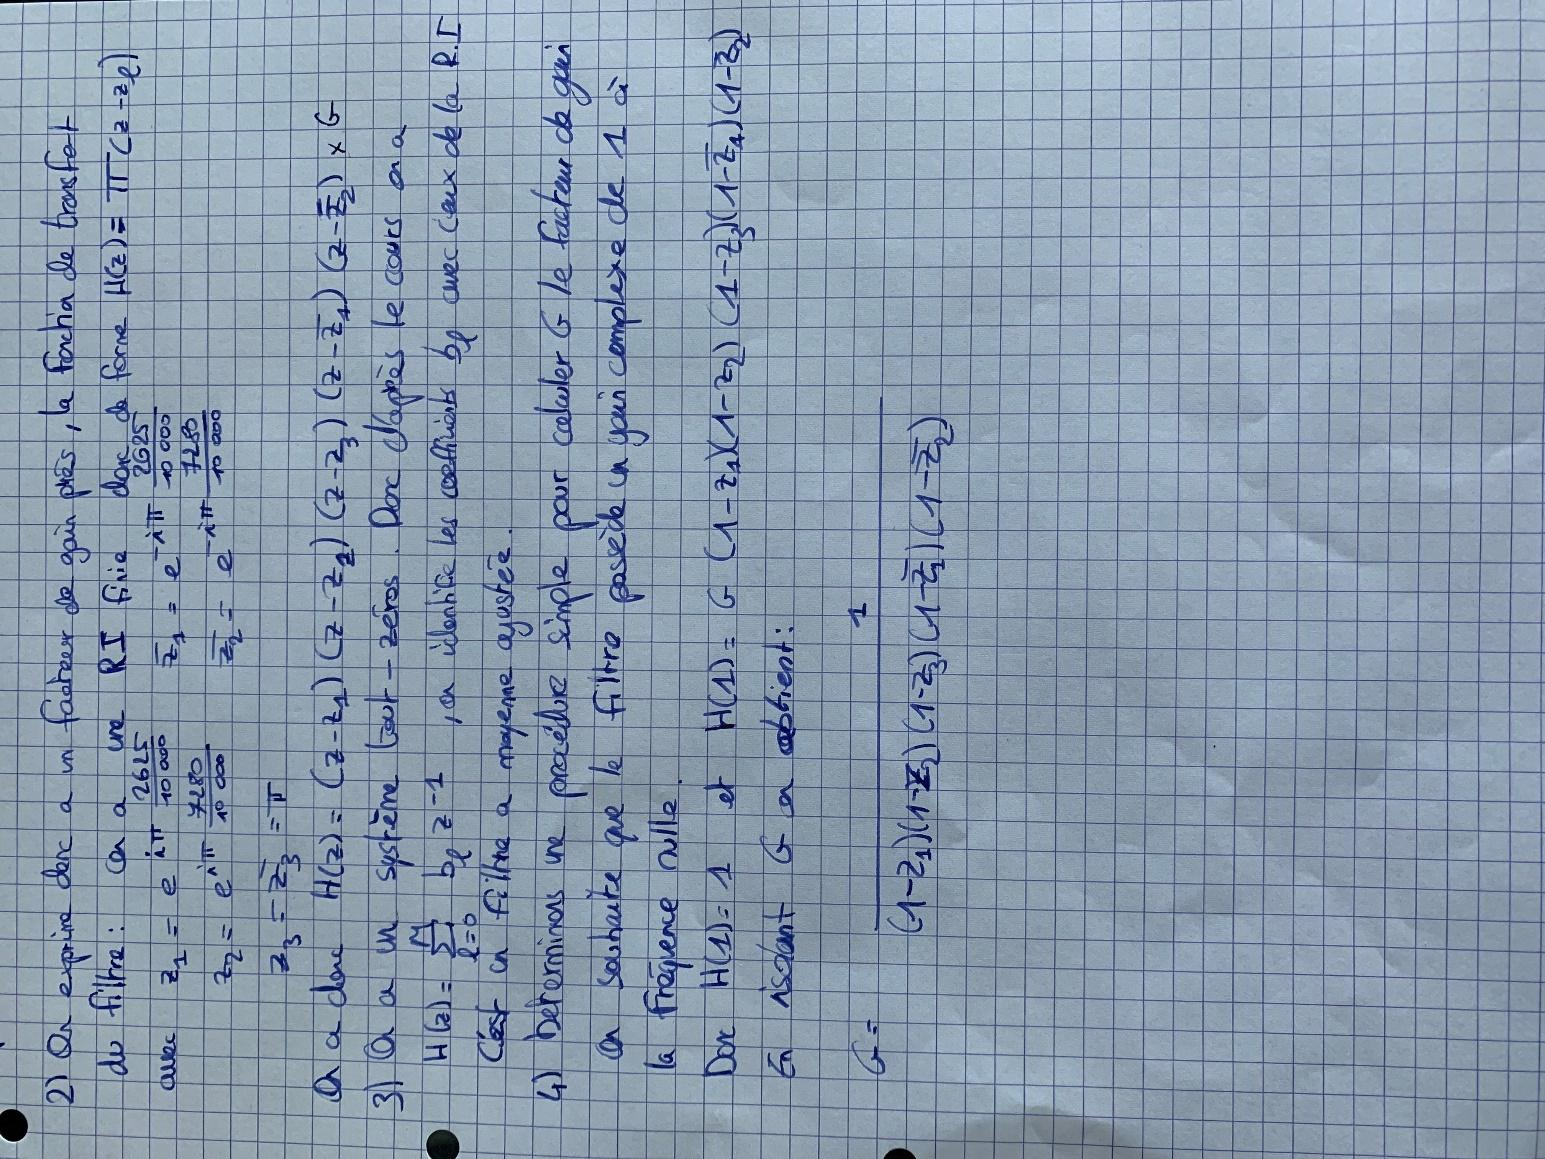 2) On exprime donc a un facteur de gain près, la fonction de transfert
du filtre : On a une RI finie donc de forme H(z) = Π (z - z_ℓ)
avec z₁ = e^{iπ 2625/10 000} z̄₁ = e^{-iπ 2625/10 000}
z₂ = e^{iπ 7280/10 000} z̄₂ = e^{-iπ 7280/10 000}
z₃ = z̄₃ = π
On a donc H(z) = (z - z₁) (z - z₂) (z - z₃) (z - z̄₁) (z - z̄₂) × G
3) On a un système tout-zéros. Donc d'après le cours on a
H(z) = Σ_{ℓ=0}^{M} b_ℓ z⁻¹, on identifie les coefficients b_ℓ avec ceux de la R.I
C'est un filtre a moyenne ajustée.
4) Determinons une procédure simple pour calculer G le facteur de gain
On souhaite que le filtre possède un gain complexe de 1 à
la fréquence nulle.
Donc H(1) = 1 et H(1) = G (1-z₁)(1-z₂) (1-z₃)(1-z̄₁)(1-z̄₂)
En isolant G on obtient :
G = 1 / (1-z₁)(1-z₂)(1-z₃)(1-z̄₁)(1-z̄₂)